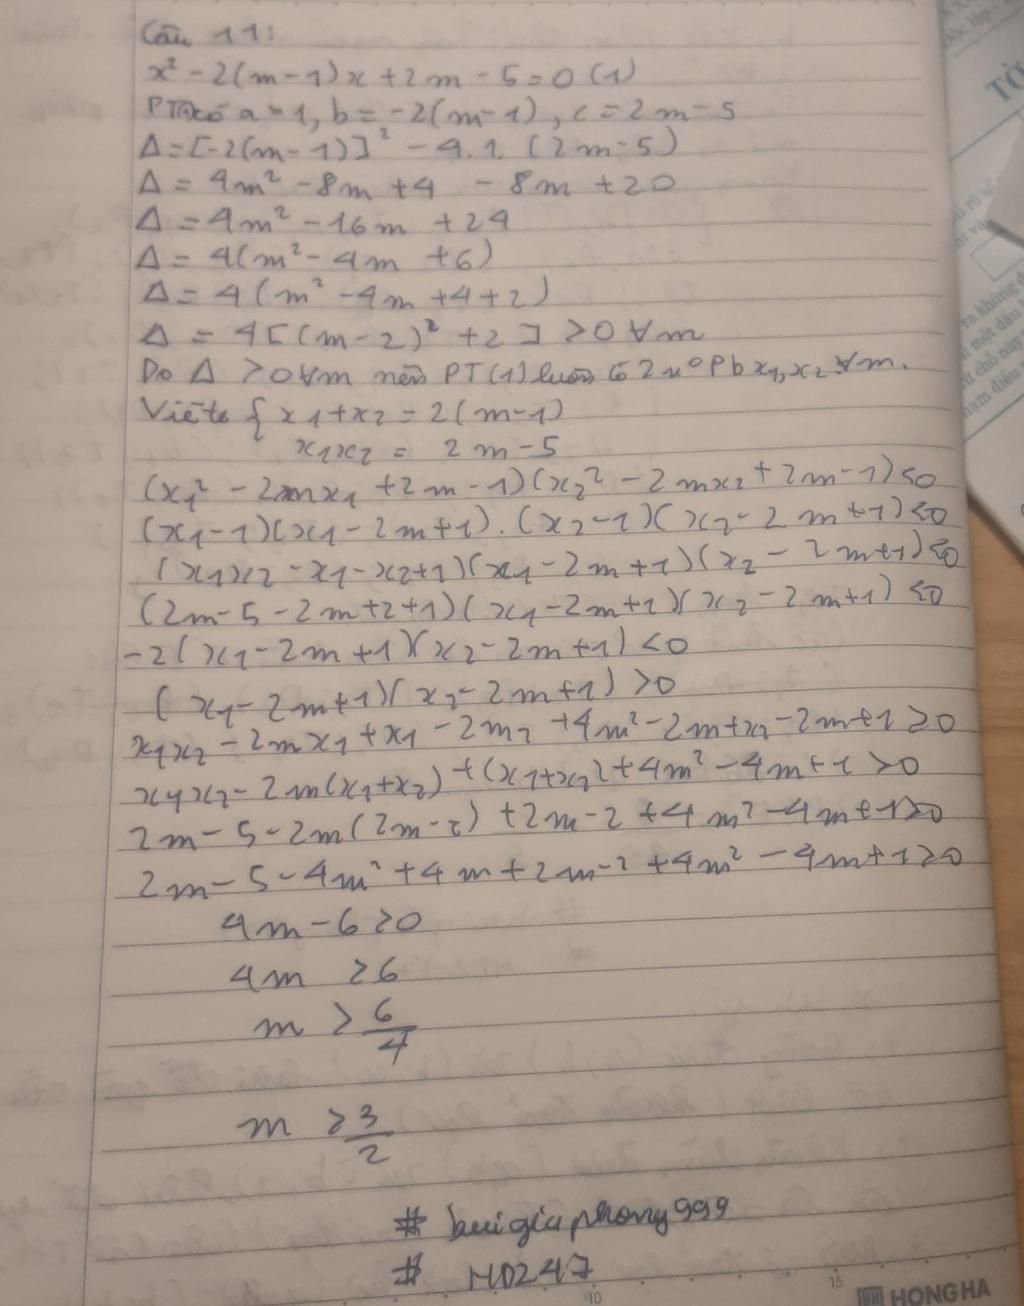 Câu 11:
x² - 2(m-1)x + 2m - 5 = 0 (1)
PT có a = 1, b = -2(m-1), c = 2m-5
Δ = [-2(m-1)]² - 4.1.(2m-5)
Δ = 4m² - 8m + 4 - 8m + 20
Δ = 4m² - 16m + 24
Δ = 4(m² - 4m + 6)
Δ = 4(m² - 4m + 4 + 2)
Δ = 4[(m-2)² + 2] > 0 ∀m
Do Δ > 0 ∀m nên PT(1) luôn có 2 n⁰ Pb x₁, x₂ ∀m.
Viète { x₁+x₂ = 2(m-1)
x₁x₂ = 2m-5
(x₁² - 2mx₁ + 2m - 1)(x₂² - 2mx₂ + 2m - 1) < 0
(x₁-1)(x₁-2m+1).(x₂-1)(x₂-2m+1) < 0
(x₁x₂ - x₁ - x₂ + 1)(x₁-2m+1)(x₂-2m+1) < 0
(2m-5-2m+2+1)(x₁-2m+1)(x₂-2m+1) < 0
-2(x₁-2m+1)(x₂-2m+1) < 0
(x₁-2m+1)(x₂-2m+1) > 0
x₁x₂ - 2mx₁ + x₁ - 2m₂ + 4m² - 2m + x₂ - 2m + 1 > 0
x₁x₂ - 2m(x₁+x₂) + (x₁+x₂) + 4m² - 4m + 1 > 0
2m - 5 - 2m(2m-2) + 2m - 2 + 4m² - 4m + 1 > 0
2m - 5 - 4m² + 4m + 2m - 2 + 4m² - 4m + 1 > 0
4m - 6 > 0
4m > 6
m > 6/4
m > 3/2
# buigiaphong999
# H0247
10
15
HONG HA
TỜ